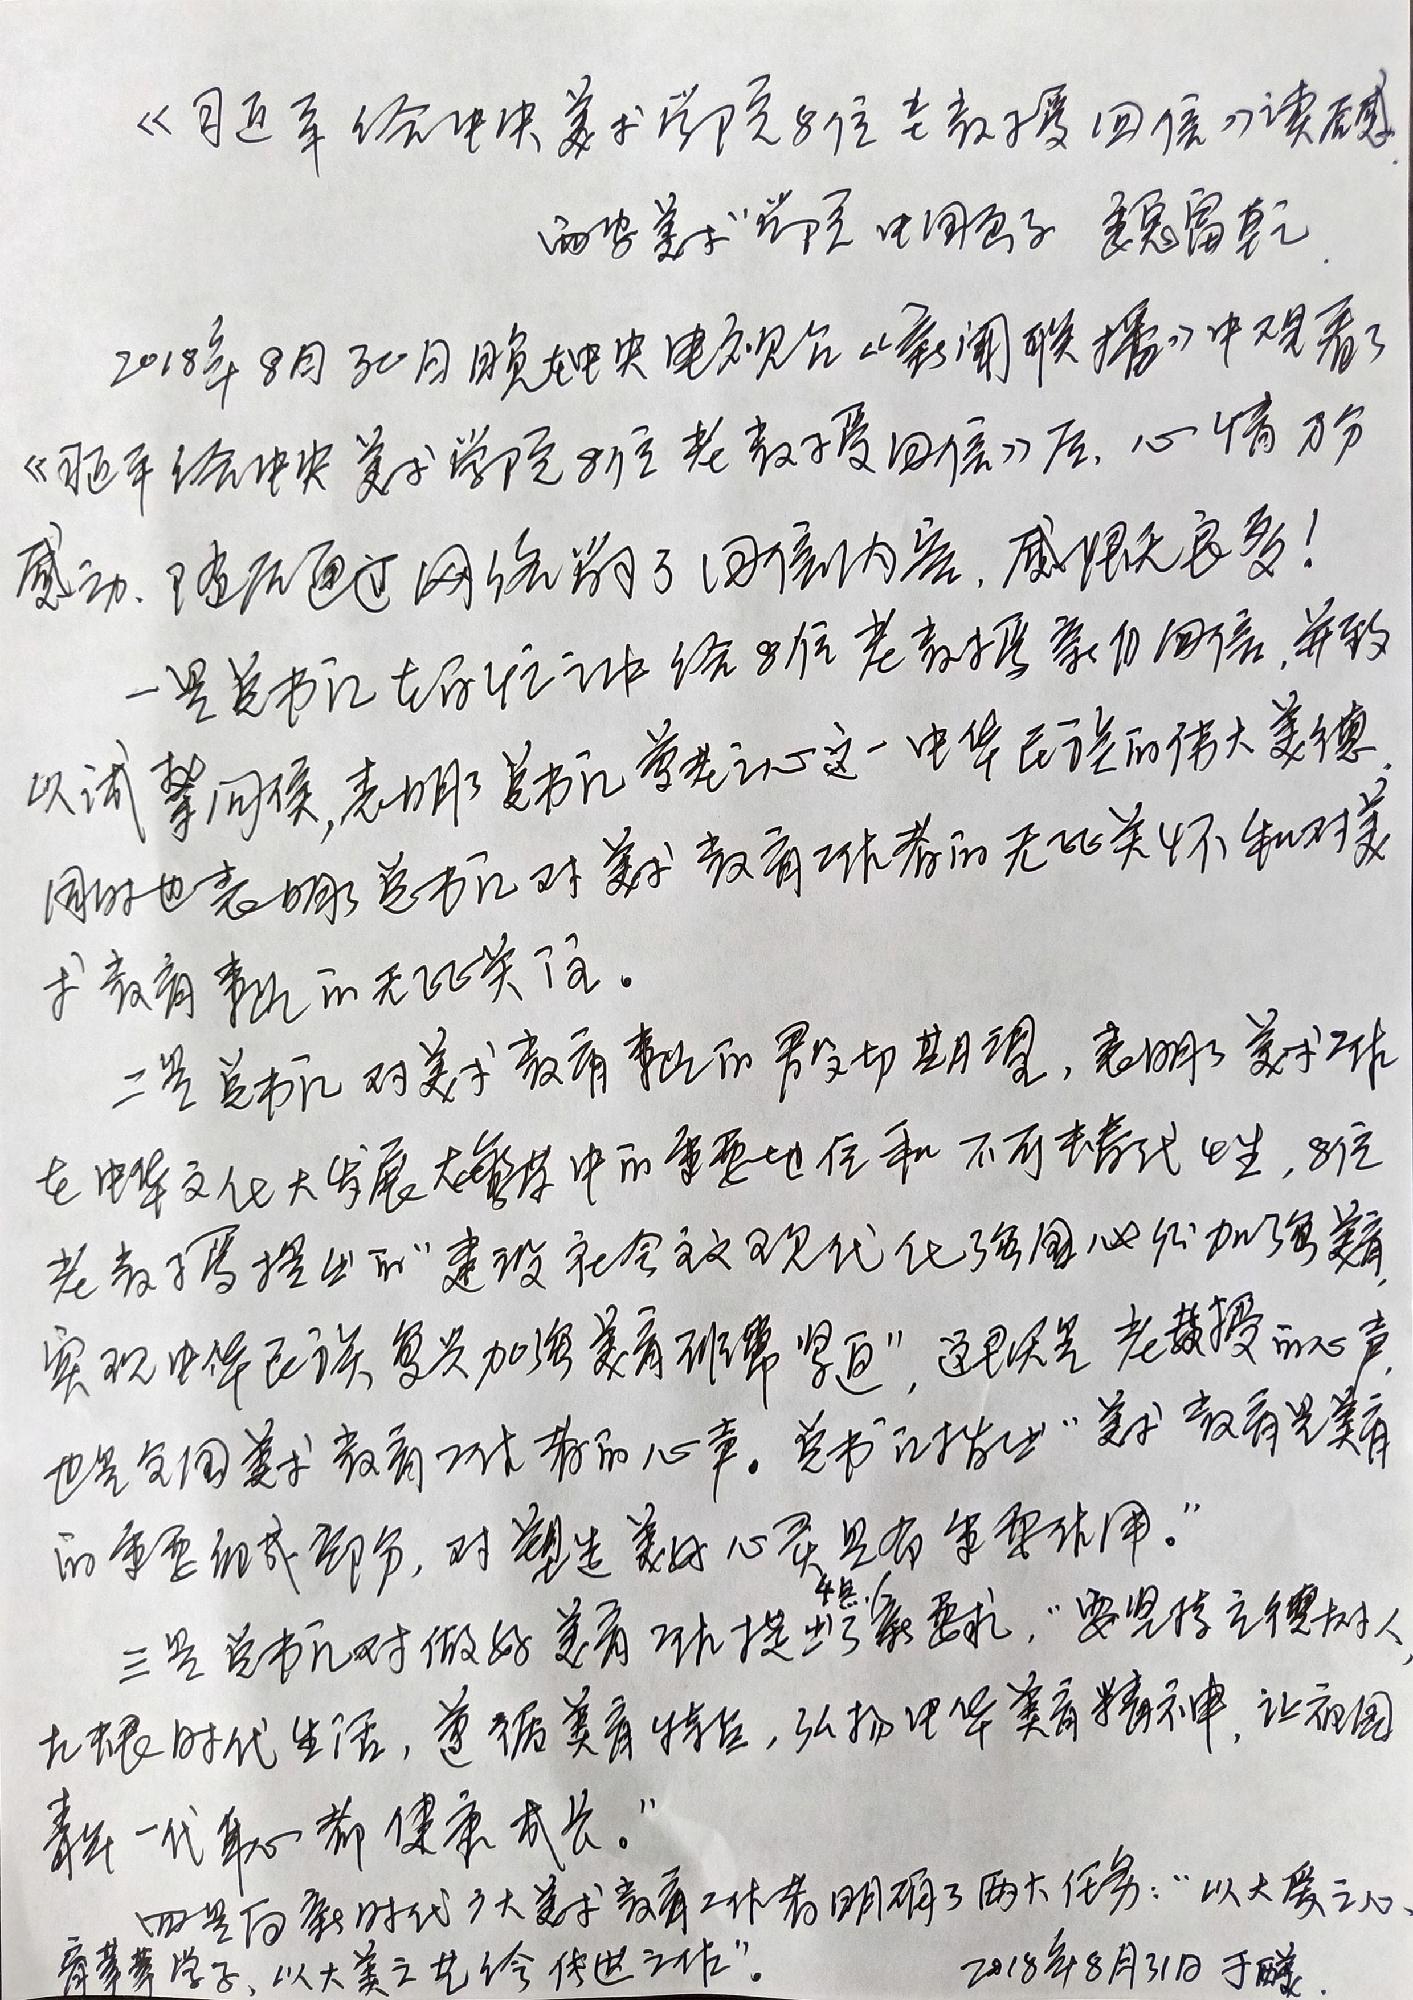 《习近平给中央美术学院8位老教授回信》读后感
西安美术学院中国画系 姜怒富乾
2018年8月30日晚在中央电视台《新闻联播》中观看了
《习近平给中央美术学院8位老教授回信》后、心情万分
感动、随后通过网络学习了回信内容，感慨良多！
一是总书记在百忙之中给8位老教授亲自回信，并致
以诚挚问候，表明了总书记尊老之心这一中华民族的伟大美德，
同时也表明了总书记对美术教育工作者的无比关怀和对美
术教育事业的无比关注。
二是总书记对美术教育事业的殷切期望，表明了美术工作
在中华文化大发展大繁荣中的重要地位和不可替代性，8位
老教授提出的"建设社会主义现代化强国必须加强美育，
实现中华民族复兴加强美育非常紧迫"，这既是老教授的心声，
也是全国美术教育工作者的心声。总书记指出"美术教育是美育
的重要组成部分，对塑造美好心灵具有重要作用。"
三是总书记对做好美育工作提出了4点新要求，"要坚持立德树人，
扎根时代生活，遵循美育特点，弘扬中华美育精神，让祖国
青年一代身心都健康成长。"
四是向新时代广大美术教育工作者明确了两大任务："以大爱之心、
育莘莘学子、以大美之艺绘传世之作"。 2018年8月31日于西美.